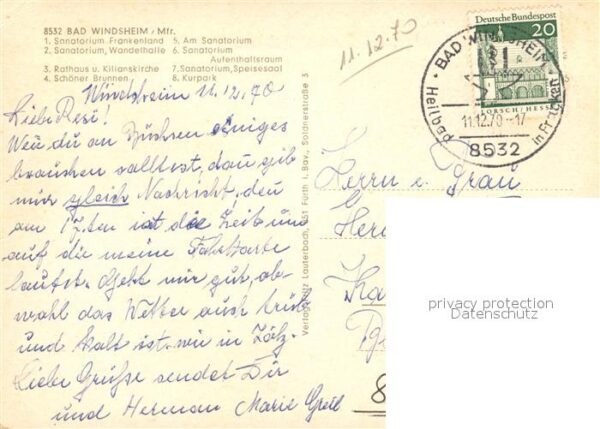 8532 BAD WINDSHEIM / Mfr.
1. Sanatorium Frankenland 5. Am Sanatorium
2. Sanatorium, Wandelhalle 6. Sanatorium
Aufenthaltsraum
3. Rathaus u. Kilianskirche 7. Sanatorium, Speisesaal
4. Schöner Brunnen 8. Kurpark
11.12.70
Windsheim 11.12.70
Liebe Resi!
Wen du an einiges
brauchen solltest, dan gib
mir gleich Nachricht, den
am 17ten ist die Zeit um
auf die meine Fahrkarte
lautet. Geht mir gut, ob-
wohl das Wetter auch trüb
und kalt ist, wie in Tölz.
Liebe Grüße sendet Dir
und Herman Marie Greil
Verlag Fritz Lauterbach, 851 Fürth i. Bav., Soldnerstraße 3
Deutsche Bundespost
20
LORSCH/HESSEN
BAD WINDSHEIM
Heilbad in Franken
11.12.70-17
8532
Herrn u. Frau
8
privacy protection
Datenschutz